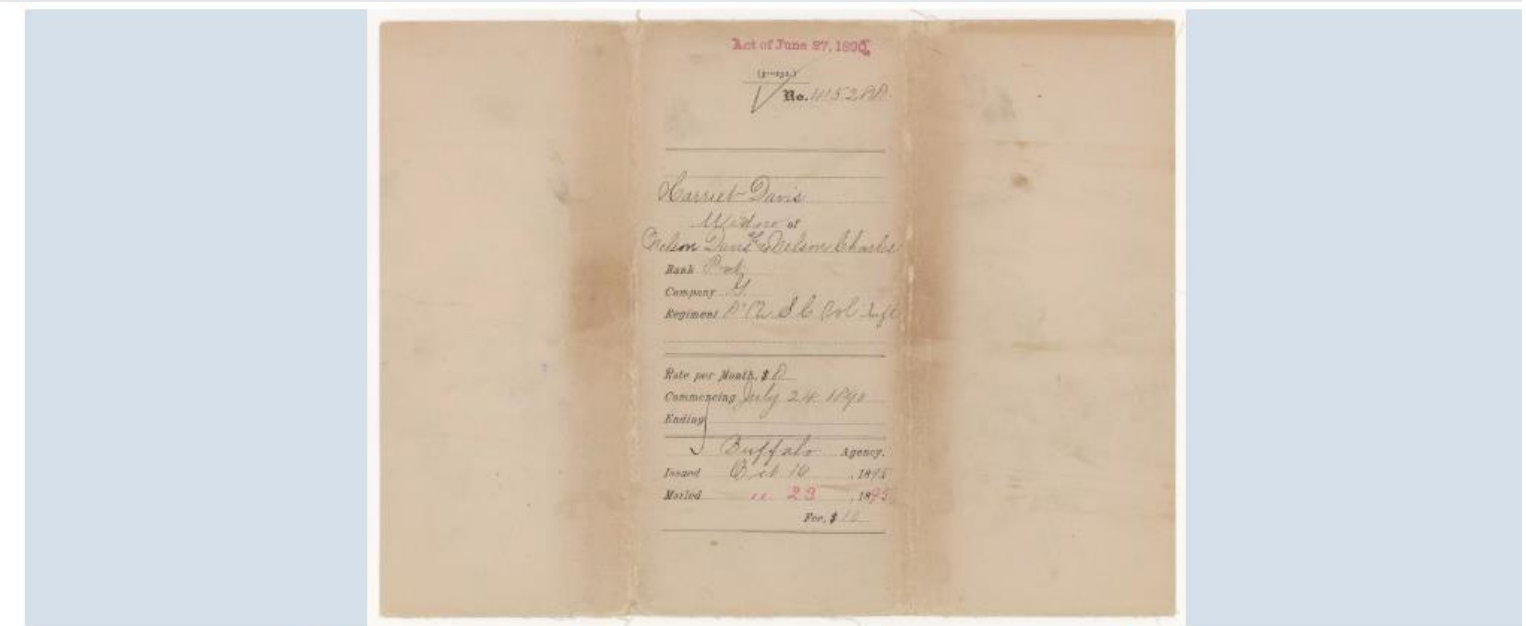 Act of June 27, 1890
No. 415288
Harriet Davis
Widow of
Nelson Davis Nelson Charles
Rank Pvt
Company G
Regiment 8" U S C Vol Inft
Rate per Month, $ 8
Commencing July 24 1890
Ending
Buffalo Agency.
Issued Oct 16 , 1895
Mailed " 23 , 1895
Fee, $ 10